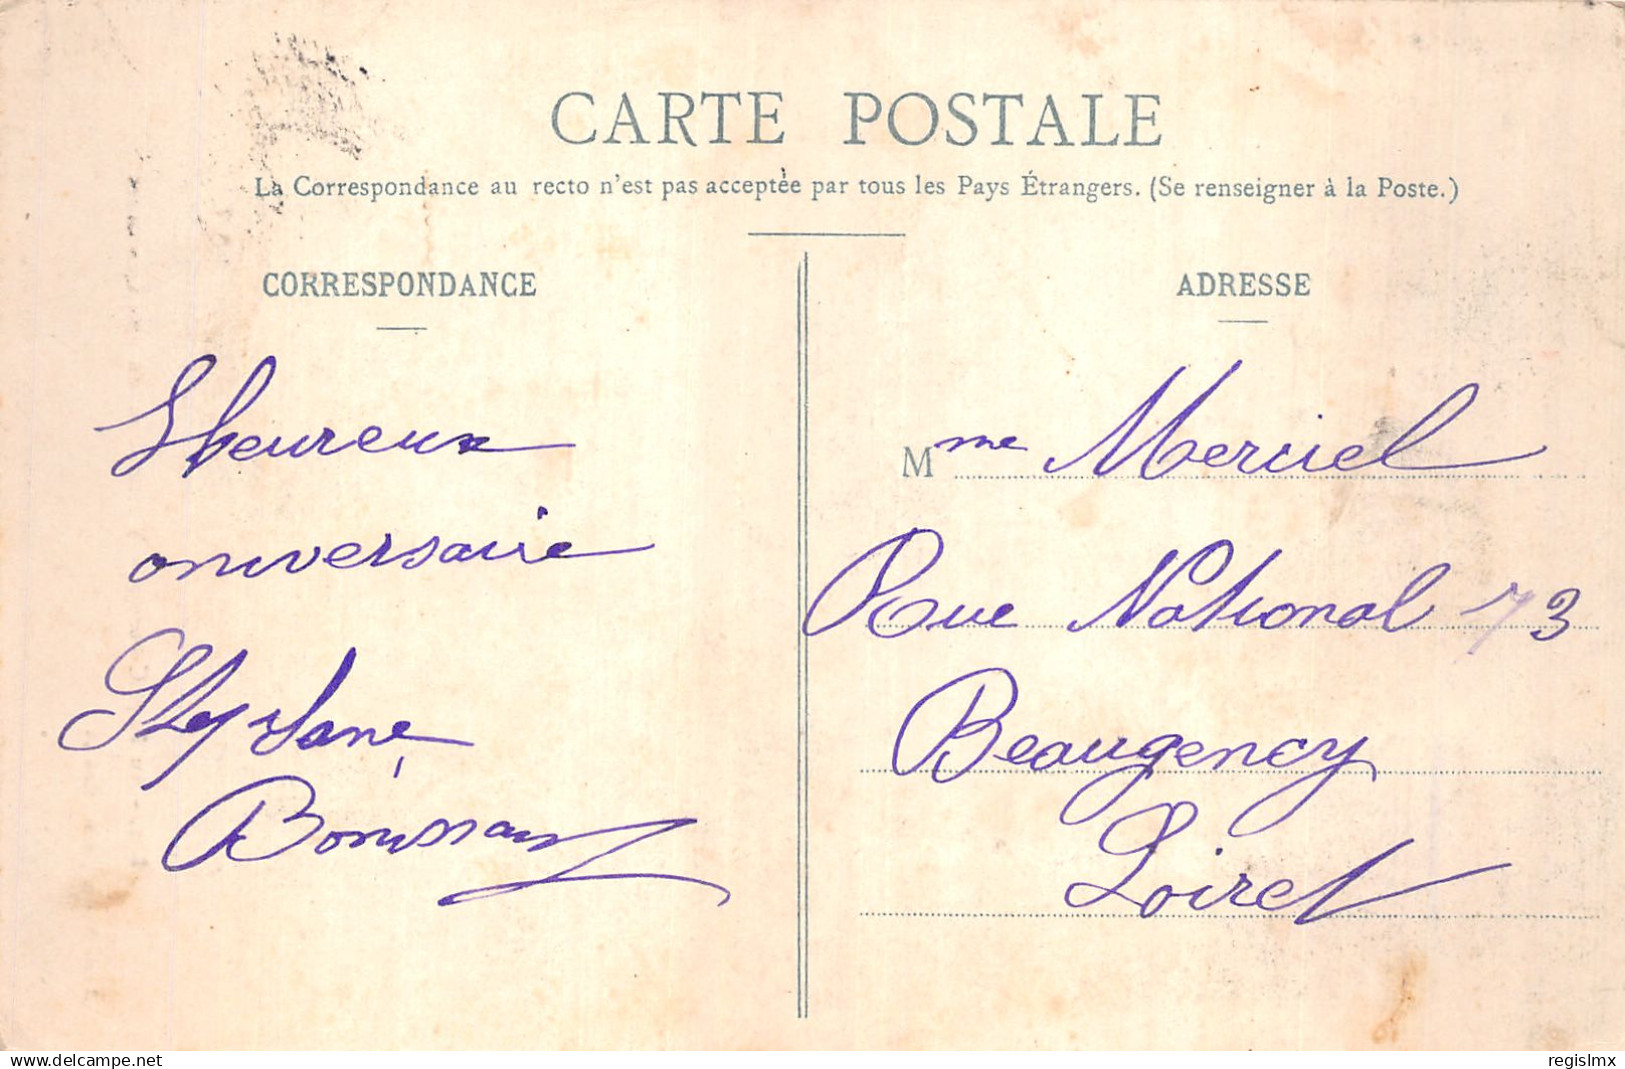 CARTE POSTALE
La Correspondance au recto n'est pas acceptée par tous les Pays Étrangers. (Se renseigner à la Poste.)
CORRESPONDANCE
Heureux
aniversaire
Stephane
ADRESSE
Mme
Rue National 73
Beaugency
Loiret
www.delcampe.net
regislmx